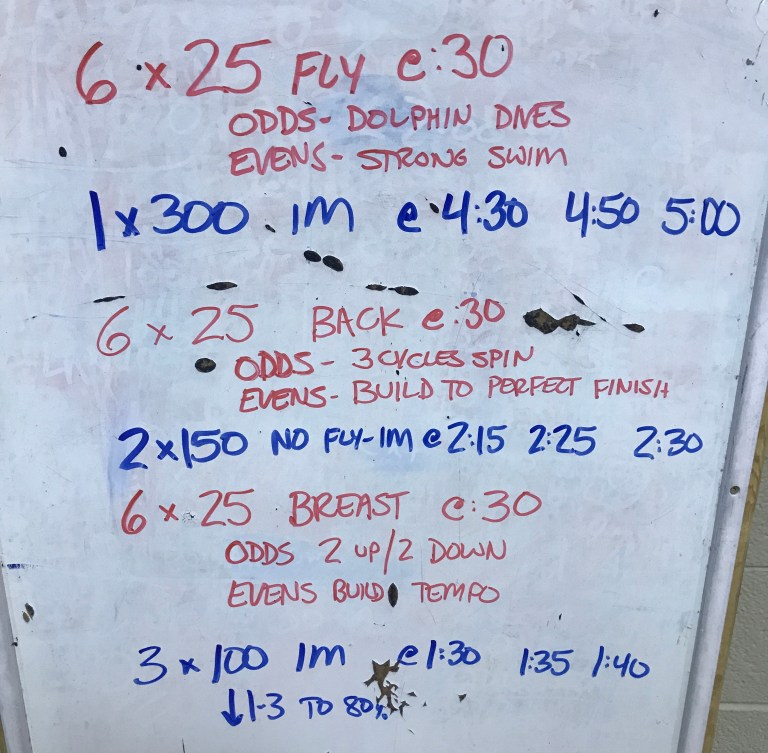 6 x 25 FLY @:30
ODDS- DOLPHIN DIVES
EVENS- STRONG SWIM
1 x 300 IM @ 4:30 4:50 5:00
6 x 25 BACK @:30
ODDS - 3 CYCLES SPIN
EVENS- BUILD TO PERFECT FINISH
2 x 150 NO FLY-IM @ 2:15 2:25 2:30
6 x 25 BREAST @:30
ODDS 2 UP/2 DOWN
EVENS BUILD TEMPO
3 x 100 IM @ 1:30 1:35 1:40
↓1-3 TO 80%